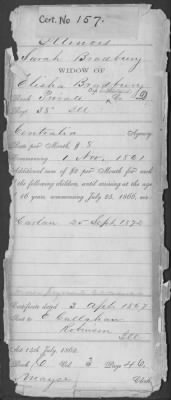 Cert. No 157.
Illinois
Sarah Bradbury
WIDOW OF
Elisha Bradbury
Rank Private Co D
Regt 38" Ill
Centralia Agency
Rate per Month $ 8
Commencing 1 Nov. 1861
Additional sum of $2 per Month for each
of the following children, until arriving at the age
of 16 years, commencing July 25, 1866, viz:
25 Sept. 1872
Certificate dated 3 Apl. 1867
Sent to E Callahan
Robinson
Ill
Act 14th July, 1862.
Book Vol. 3 Page 46
Clerk.